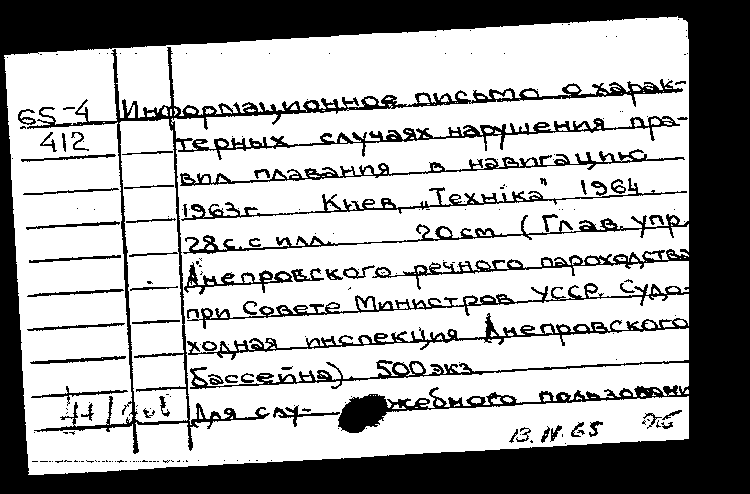 65-4 Информационное письмо о харак-
412 терных случаях нарушения пра-
вил плавания в навигацию
1963г. Киев, „Техніка", 1964.
28с. с илл. 20 см. (Глав. упр.
Днепровского речного пароходства
при Совете Министров УССР. Судо-
ходная инспекция Днепровского
бассейна). 500 экз.
Для слу- жебного пользовани
13.IV.65